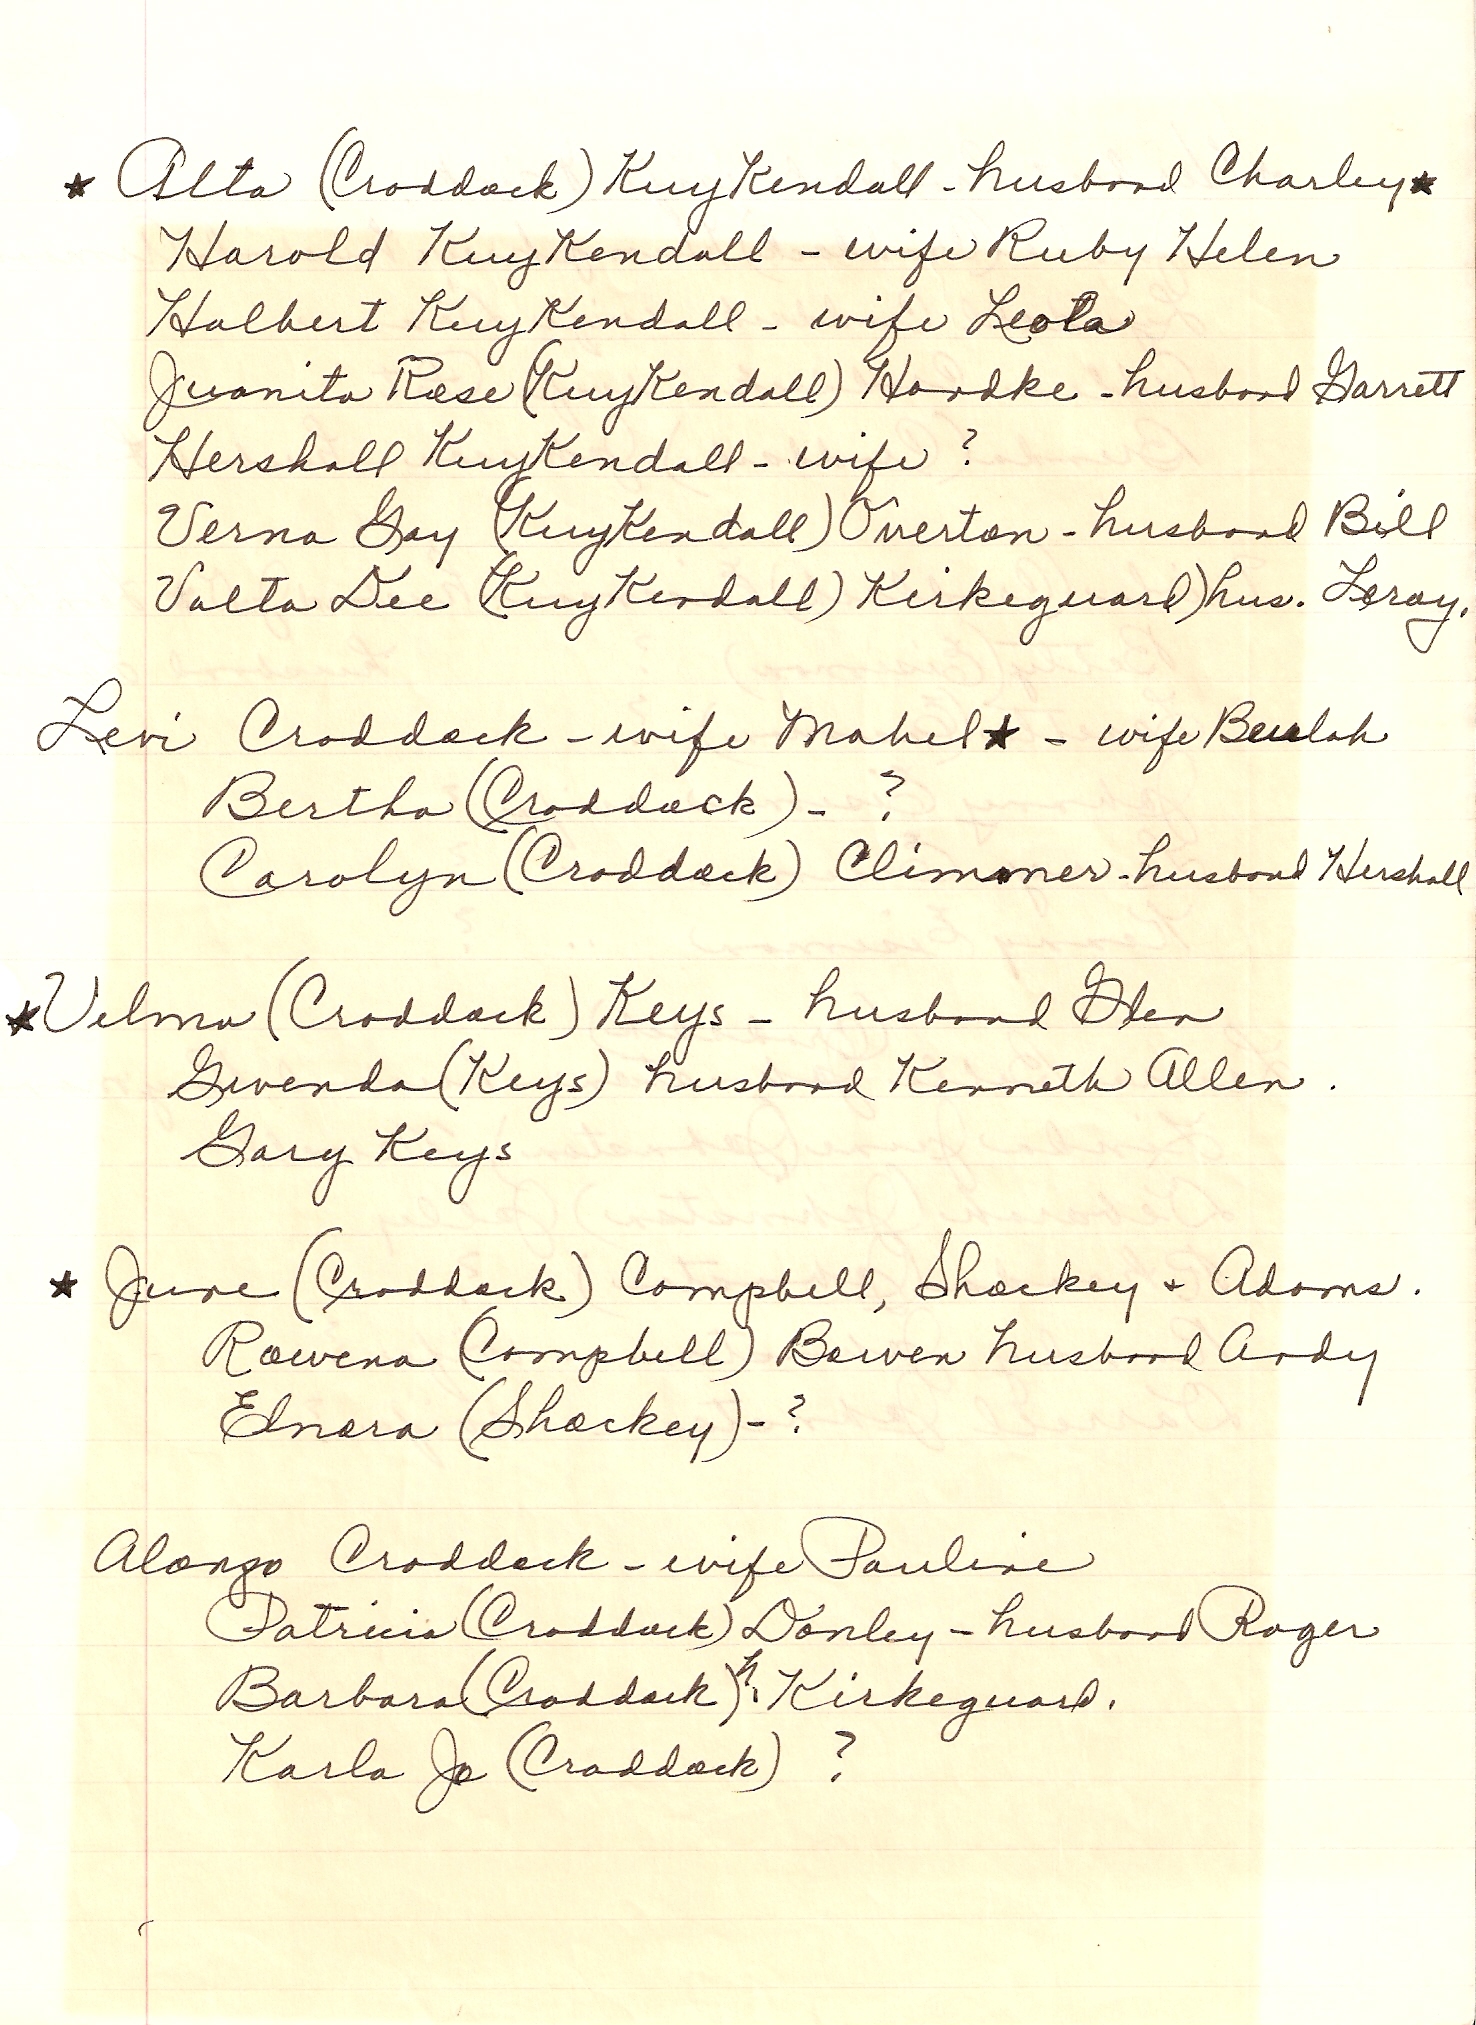 ★ Alta (Craddock) KuyKendall - husband Charley ★
Harold KuyKendall - wife Ruby Helen
Halbert KuyKendall - wife Leota
Juanita Rose (KuyKendall) Handke - husband Garrett
Hershall KuyKendall - wife ?
Verna Gay (KuyKendall) Overton - husband Bill
Valta Dee (KuyKendall) Kirkeguard) hus. Leroy.
Levi Craddock - wife Mabel ★ - wife Beulah
Bertha (Craddock) - ?
Carolyn (Craddock) Climmer - husband Hershall
★ Velma (Craddock) Keys - husband Glen
Gwenda (Keys) husband Kenneth Allen.
Gary Keys
★ June (Craddock) Campbell, Shockey + Adams.
Rowena (Campbell) Bowen husband Andy
Elnora (Shockey) - ?
Alonzo Craddock - wife Pauline
Patricia (Craddock) Donley - husband Roger
Barbara (Craddock) h. Kirkeguard.
Karla Jo (Craddock) ?